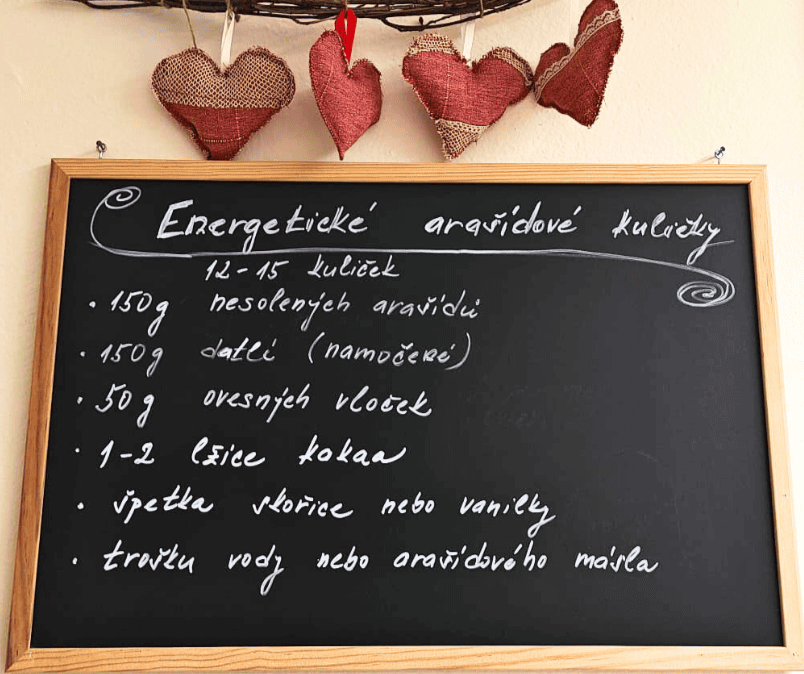 Energetické arašídové kuličky
12-15 kuliček
• 150g nesolených arašídů
• 150g datlí (namočené)
• 50g ovesných vloček
• 1-2 lžíce kakaa
• špetka skořice nebo vanilky
• trošku vody nebo arašídového másla